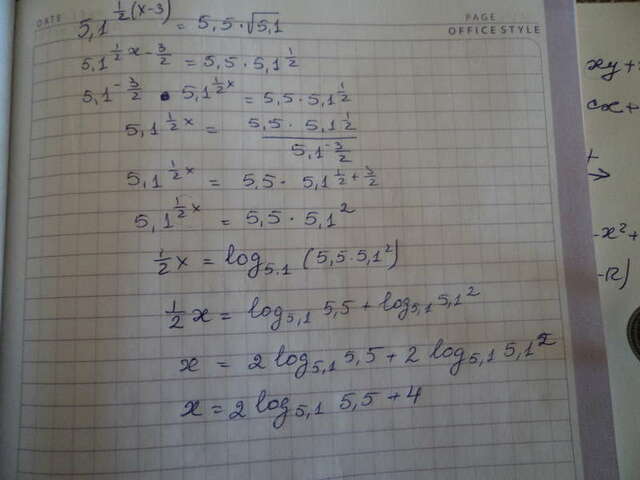 DATE
PAGE
OFFICE STYLE
5,1^{\frac{1}{2}(x-3)} = 5,5 · √5,1
5,1^{\frac{1}{2}x - \frac{3}{2}} = 5,5 · 5,1^{\frac{1}{2}}
5,1^{-\frac{3}{2}} · 5,1^{\frac{1}{2}x} = 5,5 · 5,1^{\frac{1}{2}}
5,1^{\frac{1}{2}x} = \frac{5,5 · 5,1^{\frac{1}{2}}}{5,1^{-\frac{3}{2}}}
5,1^{\frac{1}{2}x} = 5,5 · 5,1^{\frac{1}{2}+\frac{3}{2}}
5,1^{\frac{1}{2}x} = 5,5 · 5,1^{2}
\frac{1}{2}x = log_{5.1} (5,5 · 5,1^{2})
\frac{1}{2}x = log_{5,1} 5,5 + log_{5,1} 5,1^{2}
x = 2 log_{5,1} 5,5 + 2 log_{5,1} 5,1^{2}
x = 2 log_{5,1} 5,5 + 4
xy +
cx +
-x² +